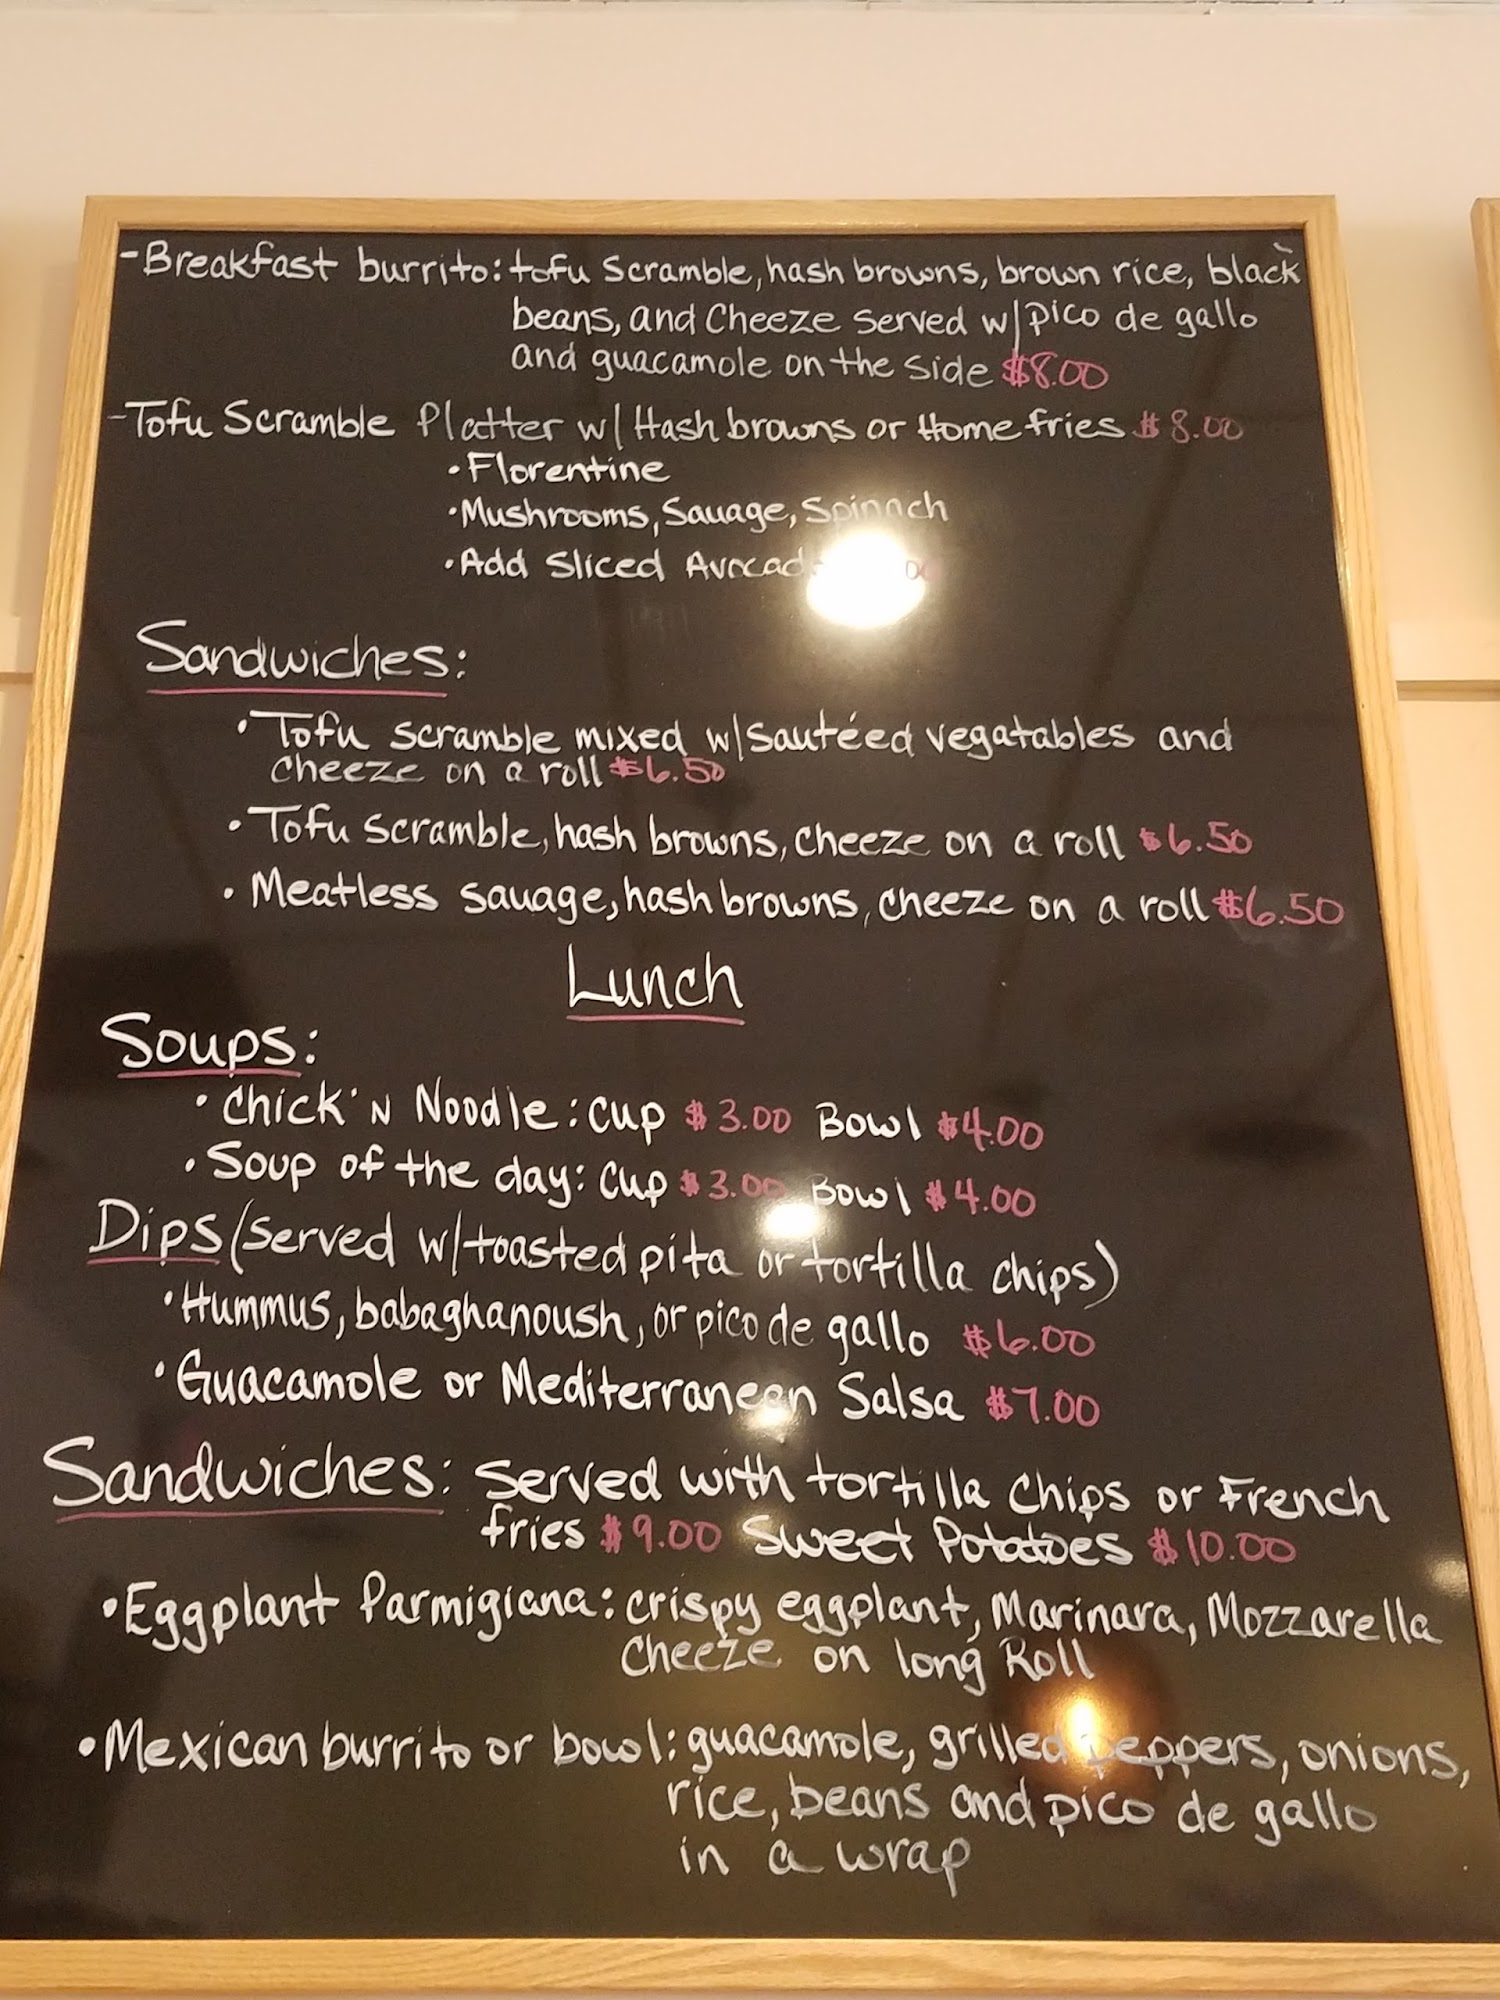 -Breakfast burrito: tofu scramble, hash browns, brown rice, black
beans, and cheeze served w/ pico de gallo
and guacamole on the side $8.00
-Tofu Scramble Platter w/ Hash browns or Home fries $8.00
•Florentine
•Mushrooms, Sauage, Spinach
•Add Sliced Avocad
Sandwiches:
•Tofu scramble mixed w/ sautéed vegatables and
cheeze on a roll $6.50
•Tofu scramble, hash browns, cheeze on a roll $6.50
•Meatless sauage, hash browns, cheeze on a roll $6.50
Lunch
Soups:
•Chick'N Noodle: Cup $3.00 Bowl $4.00
•Soup of the day: Cup $3.00 Bowl $4.00
Dips (served w/ toasted pita or tortilla chips)
•Hummus, babaghanoush, or pico de gallo $6.00
•Guacamole or Mediterranean Salsa $7.00
Sandwiches: Served with tortilla chips or French
fries $9.00 Sweet Potatoes $10.00
•Eggplant Parmigiana: crispy eggplant, Marinara, Mozzarella
Cheeze on long Roll
•Mexican burrito or bowl: guacamole, grilled peppers, onions,
rice, beans and pico de gallo
in a wrap